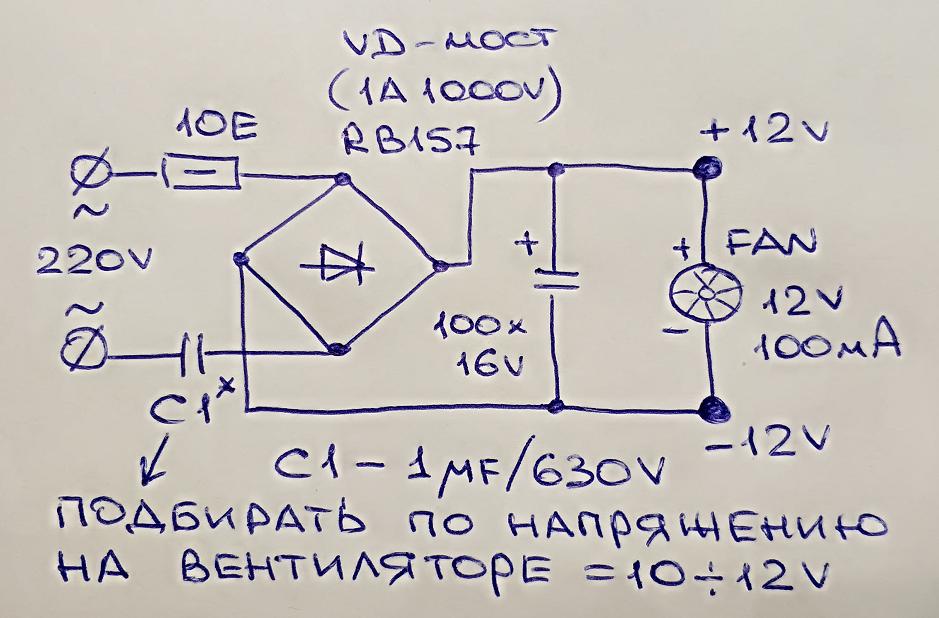 VD-мост
(1A 1000V)
RB157
10E
+12V
~
220V
~
+
100x
16V
+ FAN
12V
100мA
-
-12V
C1*
C1 - 1μF/630V
ПОДБИРАТЬ ПО НАПРЯЖЕНИЮ
НА ВЕНТИЛЯТОРЕ =10÷12V